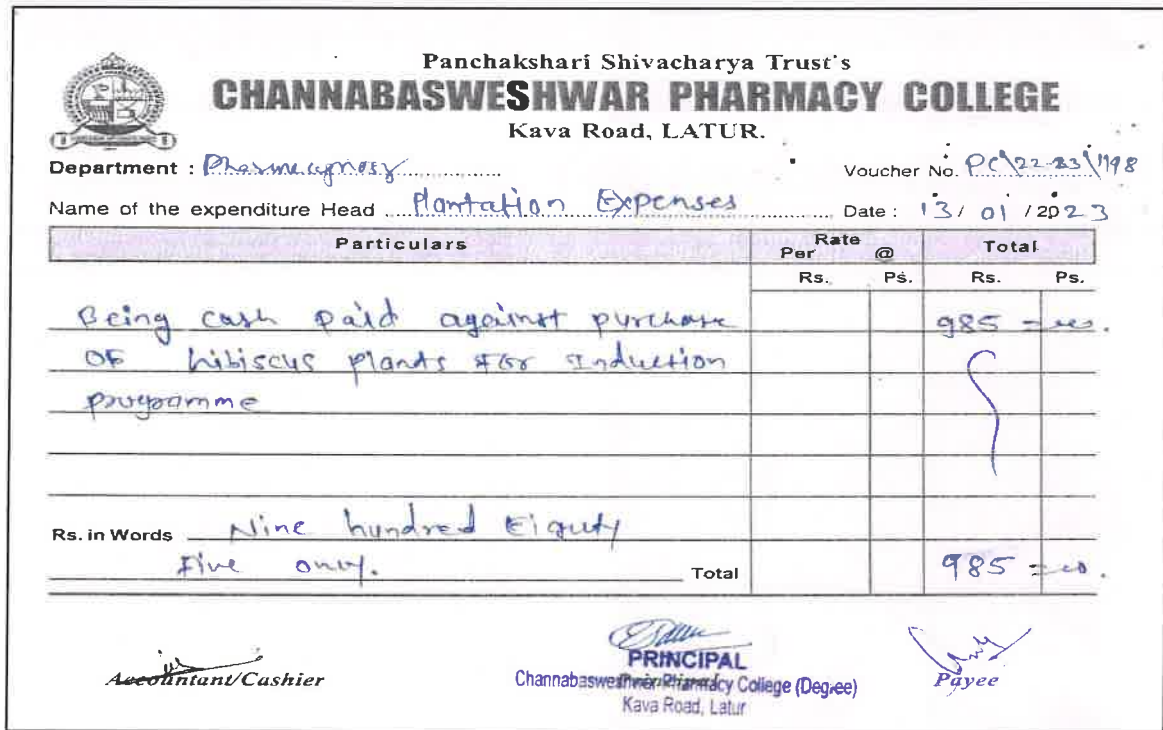 Panchakshari Shivacharya Trust's
CHANNABASWESHWAR PHARMACY COLLEGE
Kava Road, LATUR.
Department : Pharmacognosy Voucher No. PC\22-23\1198
Name of the expenditure Head Plantation Expenses Date : 13/ 01 / 2023
Particulars Rate Per @ Total
Rs. Ps. Rs. Ps.
Being cash paid against purchase 985 =
of hibiscus plants for Induction
programme
Rs. in Words Nine hundred Eiguty
Five only. Total 985 =
PRINCIPAL
Accountant/Cashier Channabasweshwar Pharmacy College (Degree) Payee
Kava Road, Latur